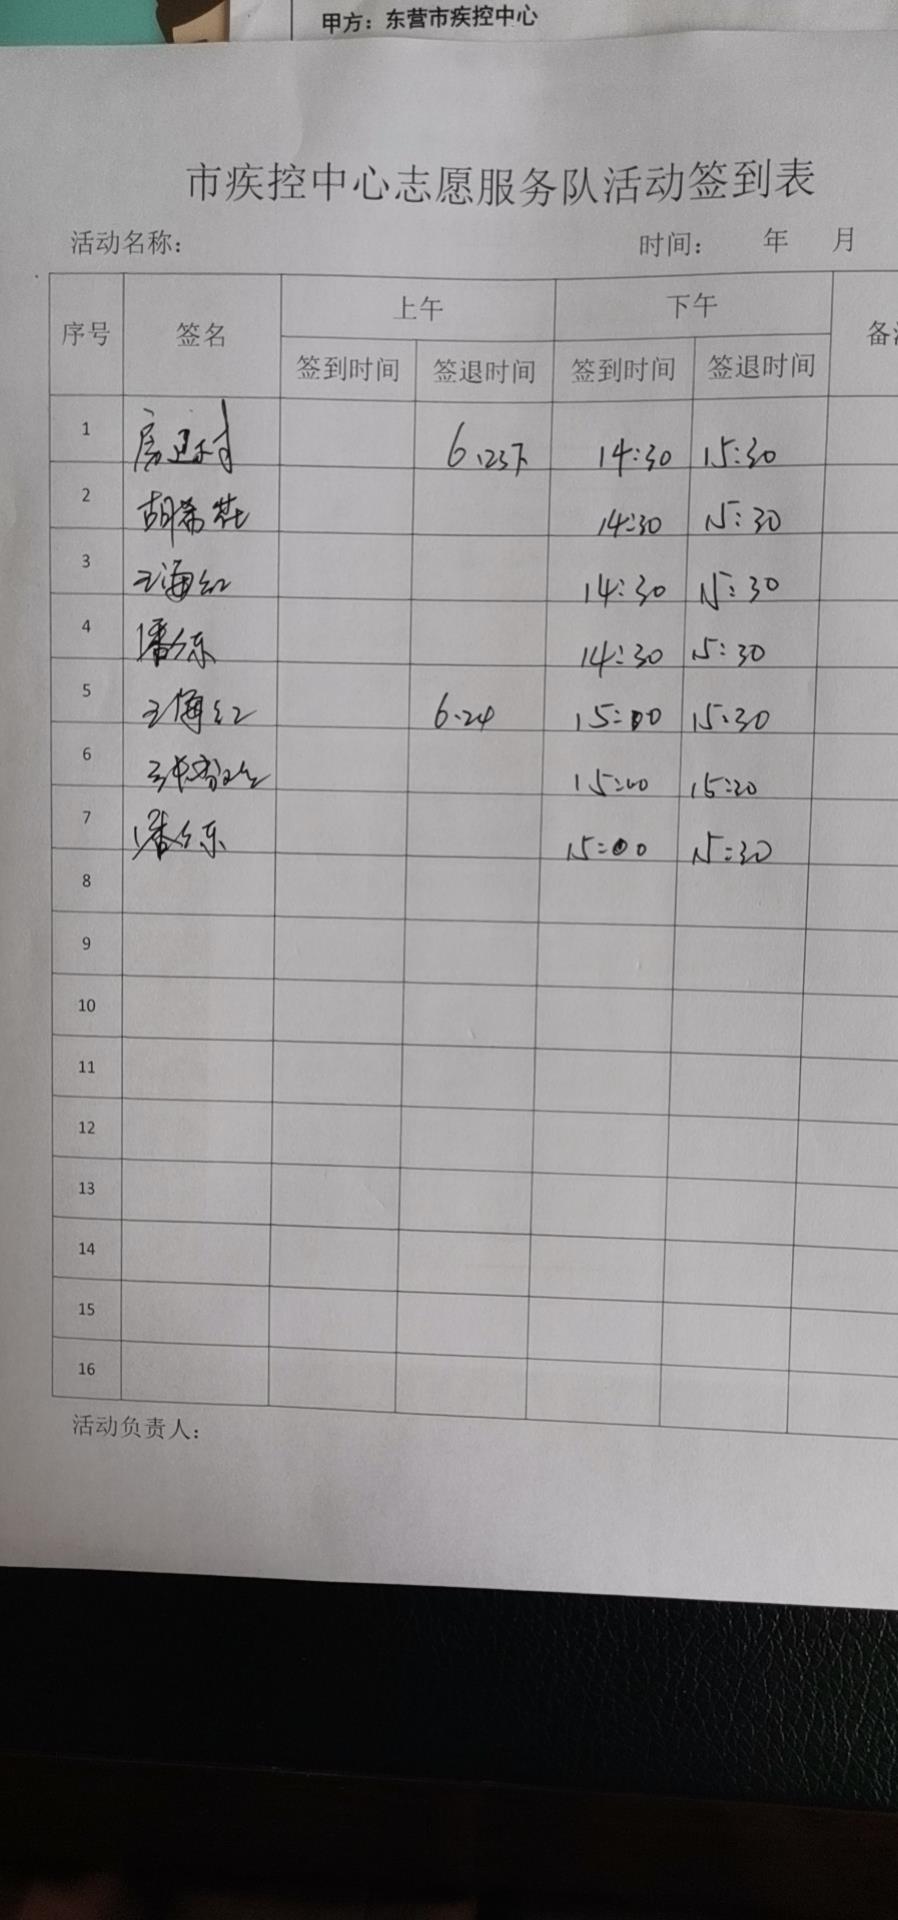 甲方：东营市疾控中心
市疾控中心志愿服务队活动签到表
活动名称： 时间： 年 月
序号 签名 上午 下午
签到时间 签退时间 签到时间 签退时间
1 6.23下 14:30 15:30
2 胡希 14:30 15:30
3 王海红 14:30 15:30
4 潘东 14:30 15:30
5 王海红 6.24 15:00 15:30
6 15:00 15:30
7 潘东 15:00 15:30
8
9
10
11
12
13
14
15
16
活动负责人：